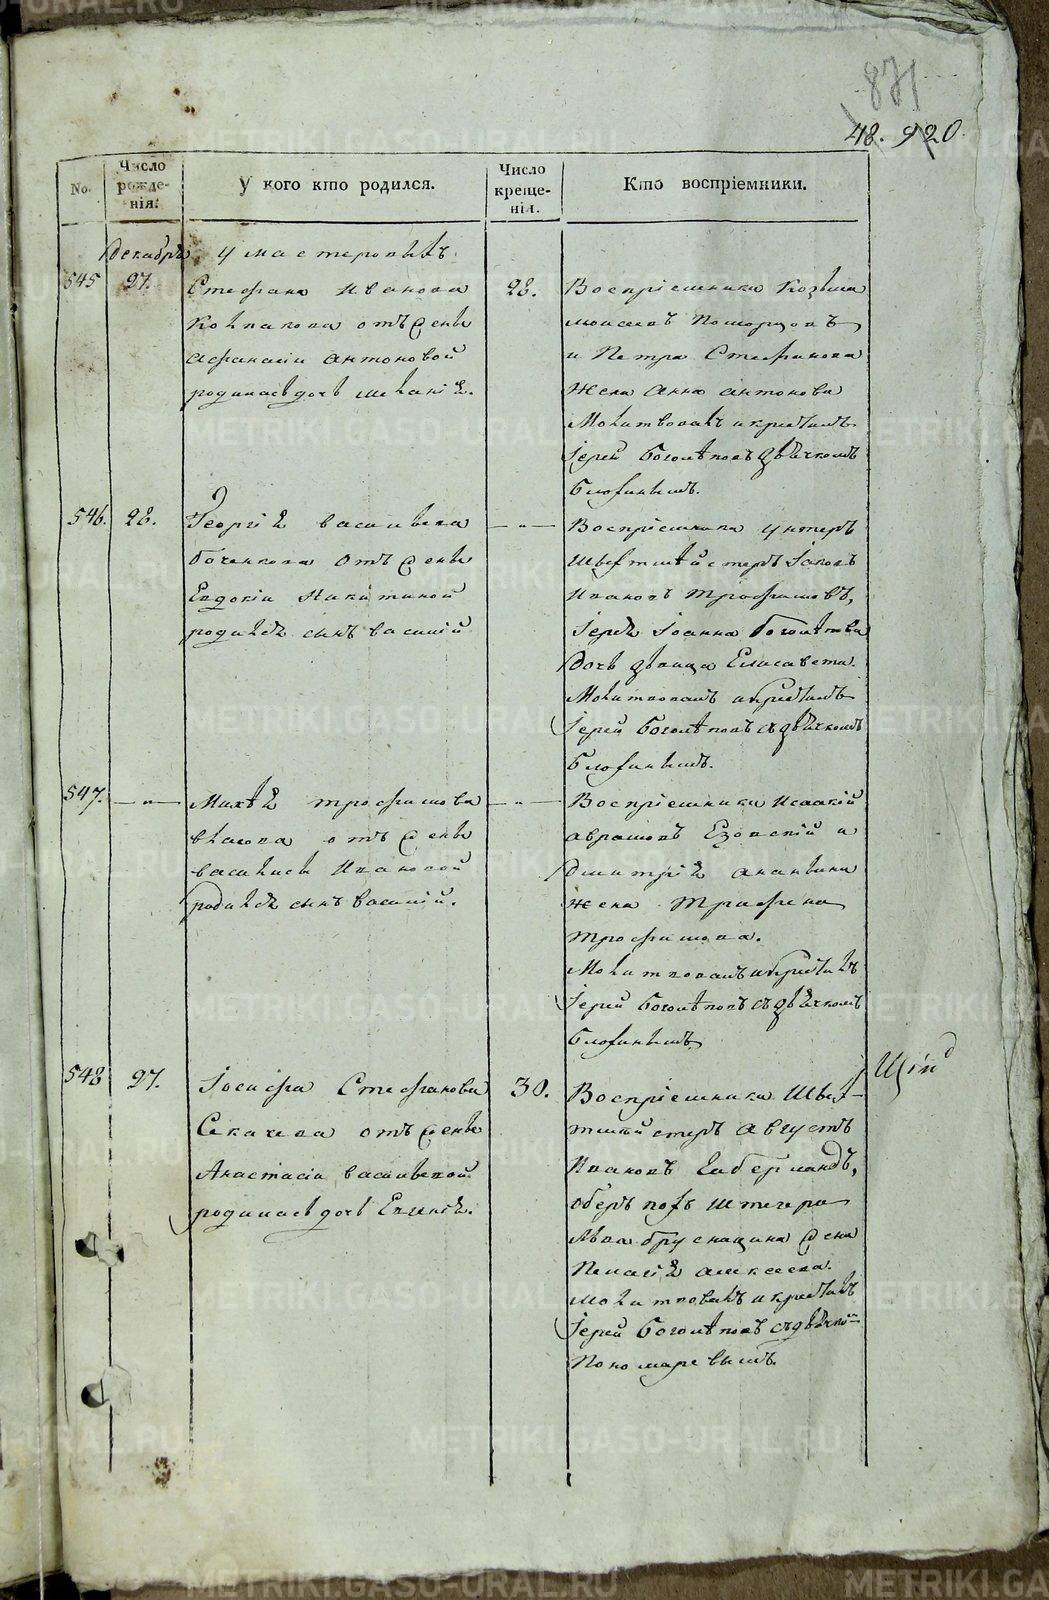 871
48. 920
No.
Число рожденія.
У кого кто родился.
Число крещенія.
Кто воспріемники.
Декабрь
У мастеровыхъ
545
27.
Стефана Иванова
отъ жены
Афанасіи Антоновой
родилась дочь Меланія.
28.
Воспріемники Козьма
Моисеевъ Поморцовъ
и Петра Стефанова
жена Анна Антонова
Молитвовалъ и крестилъ
Іерей Боголѣповъ съ дьячкомъ
546.
28.
Георгія Васильева
отъ жены
Евдокіи Никитиной
родился сынъ Василій
— „ —
Воспріемники унтеръ
шихтмейстеръ Іаковъ
Ивановъ Трофимовъ,
Іерея Іоанна Боголѣпова
дочь дѣвица Елисавета.
Молитвовалъ и крестилъ
Іерей Боголѣповъ съ дьячкомъ
547.
— „ —
Трофимова
отъ жены
Василисы Ивановой
родился сынъ Василій.
— „ —
Воспріемники Исаакій
Аврамовъ Езовскій и
Дмитрія Ананьина
жена Трифена
Трофимова.
Молитвовалъ и крестилъ
Іерей Боголѣповъ съ дьячкомъ
548
27.
Іосифа Стефанова
Секачева отъ жены
Анастасіи Васильевой
родилась дочь Евгенія.
30.
Воспріемники Шихт-
мейстеръ Августъ
Ивановъ
Оберъ
Льва Брусницина жена
Пелагія Алексеева.
Молитвовалъ и крестилъ
Іерей Боголѣповъ съ дьячко
Пономаревымъ.
METRIKI.GASO-URAL.RU